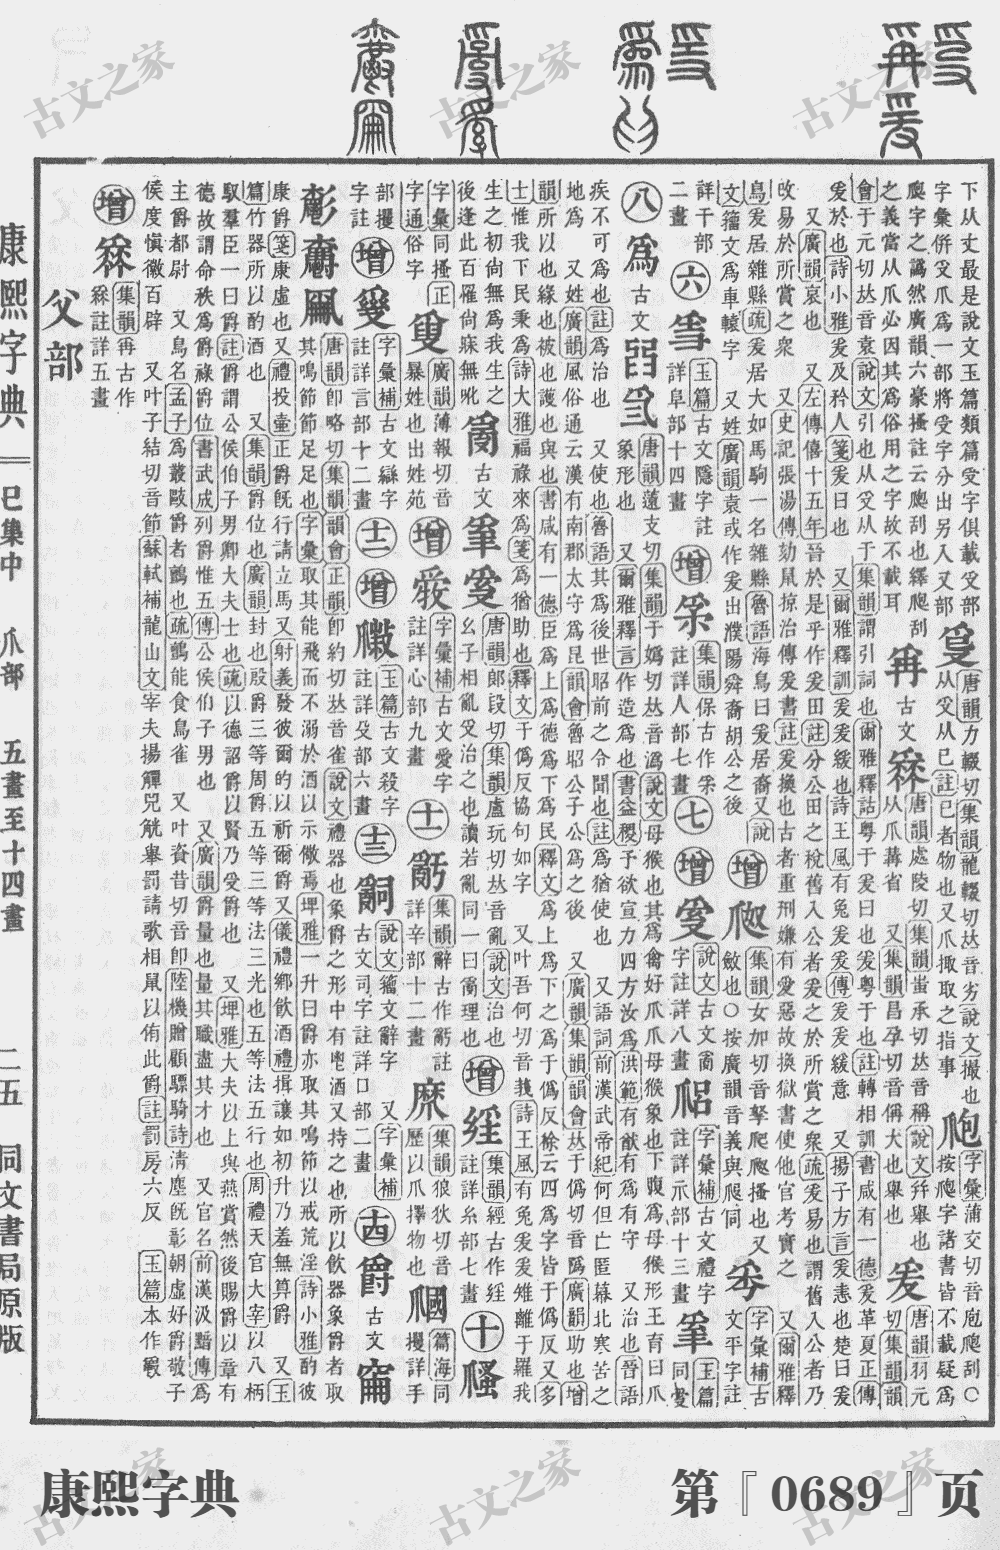 下从丈最是說文玉篇類篇𠬪字俱載𠬪部
字彙倂𠬪爪爲一部將受字分出另入又部
𤔔
唐韻力輟切集韻龍輟切𠀤音劣說文撮也
从𠬪从己註己者物也又爪掫取之指事
爮
字彙蒲交切音庖爮刮○
按爮字諸書皆不載疑爲
爬字之譌然廣韻六豪搔註云爬刮也纆爬刮
之義當从爪必因其爲俗用之字故不載耳
冉
古文
爯
唐韻處陵切集韻蚩承切𠀤音稱說文幷舉也
从爪冓省 又集韻昌孕切音偁大也舉也
爰
唐韻羽元
切集韻韻
會于元切𠀤音袁說文引也从𠬪从于集韻謂引詞也爾雅釋詁粤于爰曰也爰粤于也註轉相訓書咸有一德爰革夏正傳
爰於也詩小雅爰及矜人箋爰曰也 又爾雅釋訓爰爰緩也詩王風有兔爰爰傳爰爰緩意 又揚子方言爰恚也楚曰爰
又廣韻哀也 又左傳僖十五年晉於是乎作爰田註分公田之稅舊入公者爰之於所賞之衆疏爰易也謂舊入公者乃
改易於所賞之衆 又史記張湯傳劾鼠掠治傳爰書註爰換也古者重刑嫌有愛惡故換獄書使他官考實之 又爾雅釋
鳥爰居雜縣疏爰居大如馬駒一名雜縣魯語海鳥曰爰居 又說
文籒文爲車轅字 又姓廣韻袁或作爰出濮陽舜裔胡公之後
增
爬
集韻女加切音拏爬爬搔也又
斂也○按廣韻音義與爬同
字彙補古
文平字註
詳干部
二畫
六
玉篇古文隱字註
詳阜部十四畫
增
集韻保古作𤓽
註詳人部七畫
七
增
說文古文𤔔
字註詳八畫
字彙補古文禮字
註詳示部十三畫
玉篇
同愛
八
爲
古文
唐韻薳支切集韻于嬀切𠀤音潙說文母猴也其爲禽好爪爪母猴象也下腹爲母猴形王育曰爪
象形也 又爾雅釋言作造爲也書益稷予欲宣力四方汝爲洪範有猷有爲有守 又治也晉語
疾不可爲也註爲治也 又使也魯語其爲後世昭前之令聞也註爲猶使也 又語詞前漢武帝紀何但亡匿幕北寒苦之
地爲 又姓廣韻風俗通云漢有南郡太守爲昆韻會魯昭公子公爲之後 又廣韻集韻韻會𠀤于僞切音䧦廣韻助也增
韻所以也緣也被也護也與也書咸有一德臣爲上爲德爲下爲民釋文爲上爲下之爲于僞反徐云四爲字皆于僞反又多
士惟我下民秉爲詩大雅福祿來爲箋爲猶助也釋文于僞反協句如字 又叶吾何切音莪詩王風有兔爰爰雉離于羅我
生之初尚無爲我生之
後逢此百罹尚寐無吪
𤔔
古文
唐韻郎段切集韻盧玩切𠀤音亂說文治也
幺子相亂𠬪治之也讀若亂同一曰𤔔理也
增
集韻經古作𦀇
註詳糸部七畫
十
字彙同搔正
字通俗字
廣韻薄報切音
暴姓也出姓苑
增
字彙補古文愛字
註詳心部九畫
十一
集韻辭古作辭註
詳辛部十二畫
集韻狼狄切音
歷以爪擇物也
篇海同
攫詳手
部攫
字註
增
字彙補古文䜌字
註詳言部十二畫
十二
增
玉篇古文殺字
註詳殳部六畫
十三
嗣
說文籒文辭字 又字彙補
古文司字註詳口部二畫
十四
爵
古文
唐韻卽略切集韻韻會正韻卽約切𠀤音雀說文禮器也象爵之形中有鬯酒又持之也所以飲器象爵者取
其鳴節節足足也字彙取其能飛而不溺於酒以示儆焉埤雅一升曰爵亦取其鳴節以戒荒淫詩小雅酌彼
康爵箋康虛也又禮投壷正爵旣行請立馬又射義發彼爾的以祈爾爵又儀禮鄉飲酒禮揖讓如初升乃羞無算爵 又玉
篇竹器所以酌酒也 又集韻爵位也廣韻封也殷爵三等周爵五等三等法三光也五等法五行也周禮天官大宰以八柄
馭羣臣一曰爵註爵謂公侯伯子男卿大夫士也疏以德詔爵以賢乃受爵也 又埤雅大夫以上與燕賞然後賜爵以章有
德故謂命秩爲爵祿爵位書武成列爵惟五傳公侯伯子男也 又廣韻爵量也量其職盡其才也 又官名前漢汲黯傳爲
主爵都尉 又鳥名孟子爲叢敺爵者鸇也疏鸇能食鳥雀 又叶資昔切音卽陸機贈顧驃騎詩淸塵旣彰朝虛好爵敬子
侯度愼徽百辟 又叶子結切音節蘇軾補龍山文宰夫揚觶兕觥舉罰請歌相鼠以侑此爵註罰房六反
玉篇本作𣫭
增
集韻再古作
𤔍註詳五畫
父部
康熙字典
巳集中
爪部
五畫至十四畫
二五
同文書局原版
康熙字典
第『0689』页
古文之家
古文之家
古文之家
古文之家
古文之家
古文之家